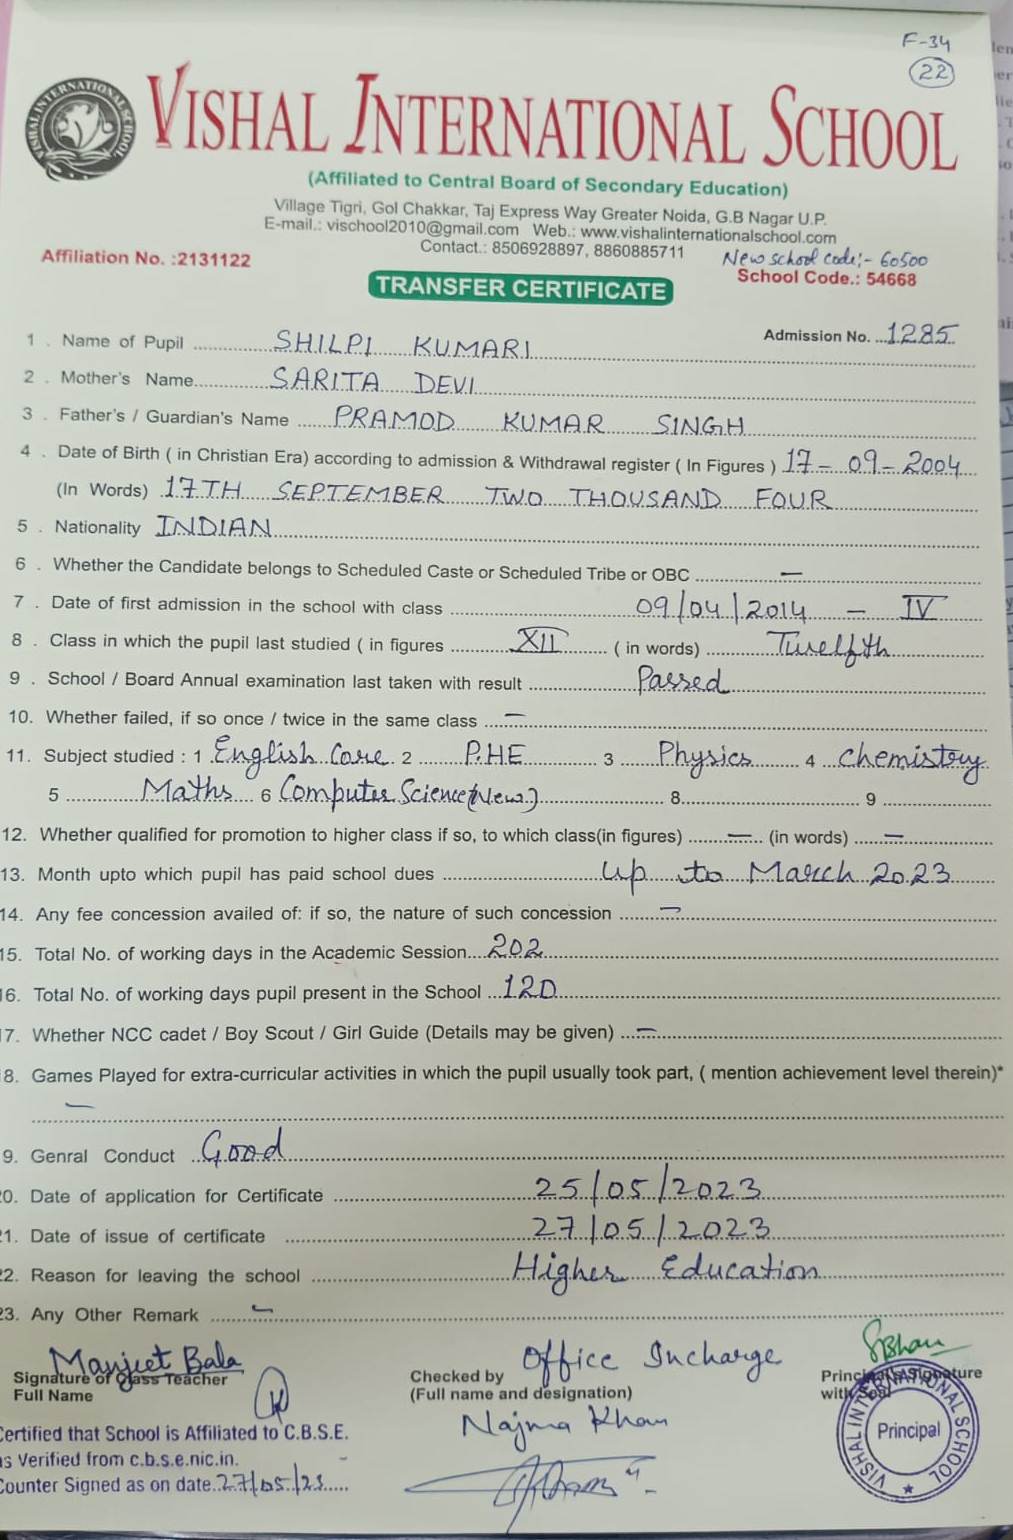 F-34
22
VISHAL INTERNATIONAL SCHOOL
VISHAL INTERNATIONAL SCHOOL
(Affiliated to Central Board of Secondary Education)
Village Tigri, Gol Chakkar, Taj Express Way Greater Noida, G.B Nagar U.P.
E-mail.: vischool2010@gmail.com Web.: www.vishalinternationalschool.com
Contact.: 8506928897, 8860885711
New school code:- 60500
Affiliation No. :2131122
School Code.: 54668
TRANSFER CERTIFICATE
Admission No. ...1285
1 . Name of Pupil ........ SHILPI KUMARI
2 . Mother's Name........ SARITA DEVI
3 . Father's / Guardian's Name ...... PRAMOD KUMAR SINGH
4 . Date of Birth ( in Christian Era) according to admission & Withdrawal register ( In Figures ) 17-09-2004
(In Words) 17TH SEPTEMBER TWO THOUSAND FOUR
5 . Nationality INDIAN
6 . Whether the Candidate belongs to Scheduled Caste or Scheduled Tribe or OBC ........ —
7 . Date of first admission in the school with class ........ 09/04/2014 — IV
8 . Class in which the pupil last studied ( in figures ........ XII ........ ( in words) ........ Twelfth
9 . School / Board Annual examination last taken with result ........ Passed
10. Whether failed, if so once / twice in the same class ........ —
11. Subject studied : 1 English Core 2 ........ P.HE ........ 3 ........ Physics ........ 4 ... Chemistry
5 ........ Maths .... 6 Computer Science(New) ........ 8........ 9 ........
12. Whether qualified for promotion to higher class if so, to which class(in figures) ........ — .... (in words) .... —
13. Month upto which pupil has paid school dues ........ up to March 2023
14. Any fee concession availed of: if so, the nature of such concession ........ —
15. Total No. of working days in the Academic Session.... 202
16. Total No. of working days pupil present in the School ... 120
17. Whether NCC cadet / Boy Scout / Girl Guide (Details may be given) .... —
8. Games Played for extra-curricular activities in which the pupil usually took part, ( mention achievement level therein)*
—
9. Genral Conduct ... Good
0. Date of application for Certificate ........ 25/05/2023
1. Date of issue of certificate ........ 27/05/2023
2. Reason for leaving the school ........ Higher Education
23. Any Other Remark ........ —
Manjeet Bala
Signature of Class Teacher
Full Name
Office Incharge
Checked by
(Full name and designation)
Najma Khan
Principal's Signature
with Seal
VISHAL INTERNATIONAL SCHOOL
Principal
Certified that School is Affiliated to C.B.S.E.
as Verified from c.b.s.e.nic.in.
Counter Signed as on date..27/05/23.....